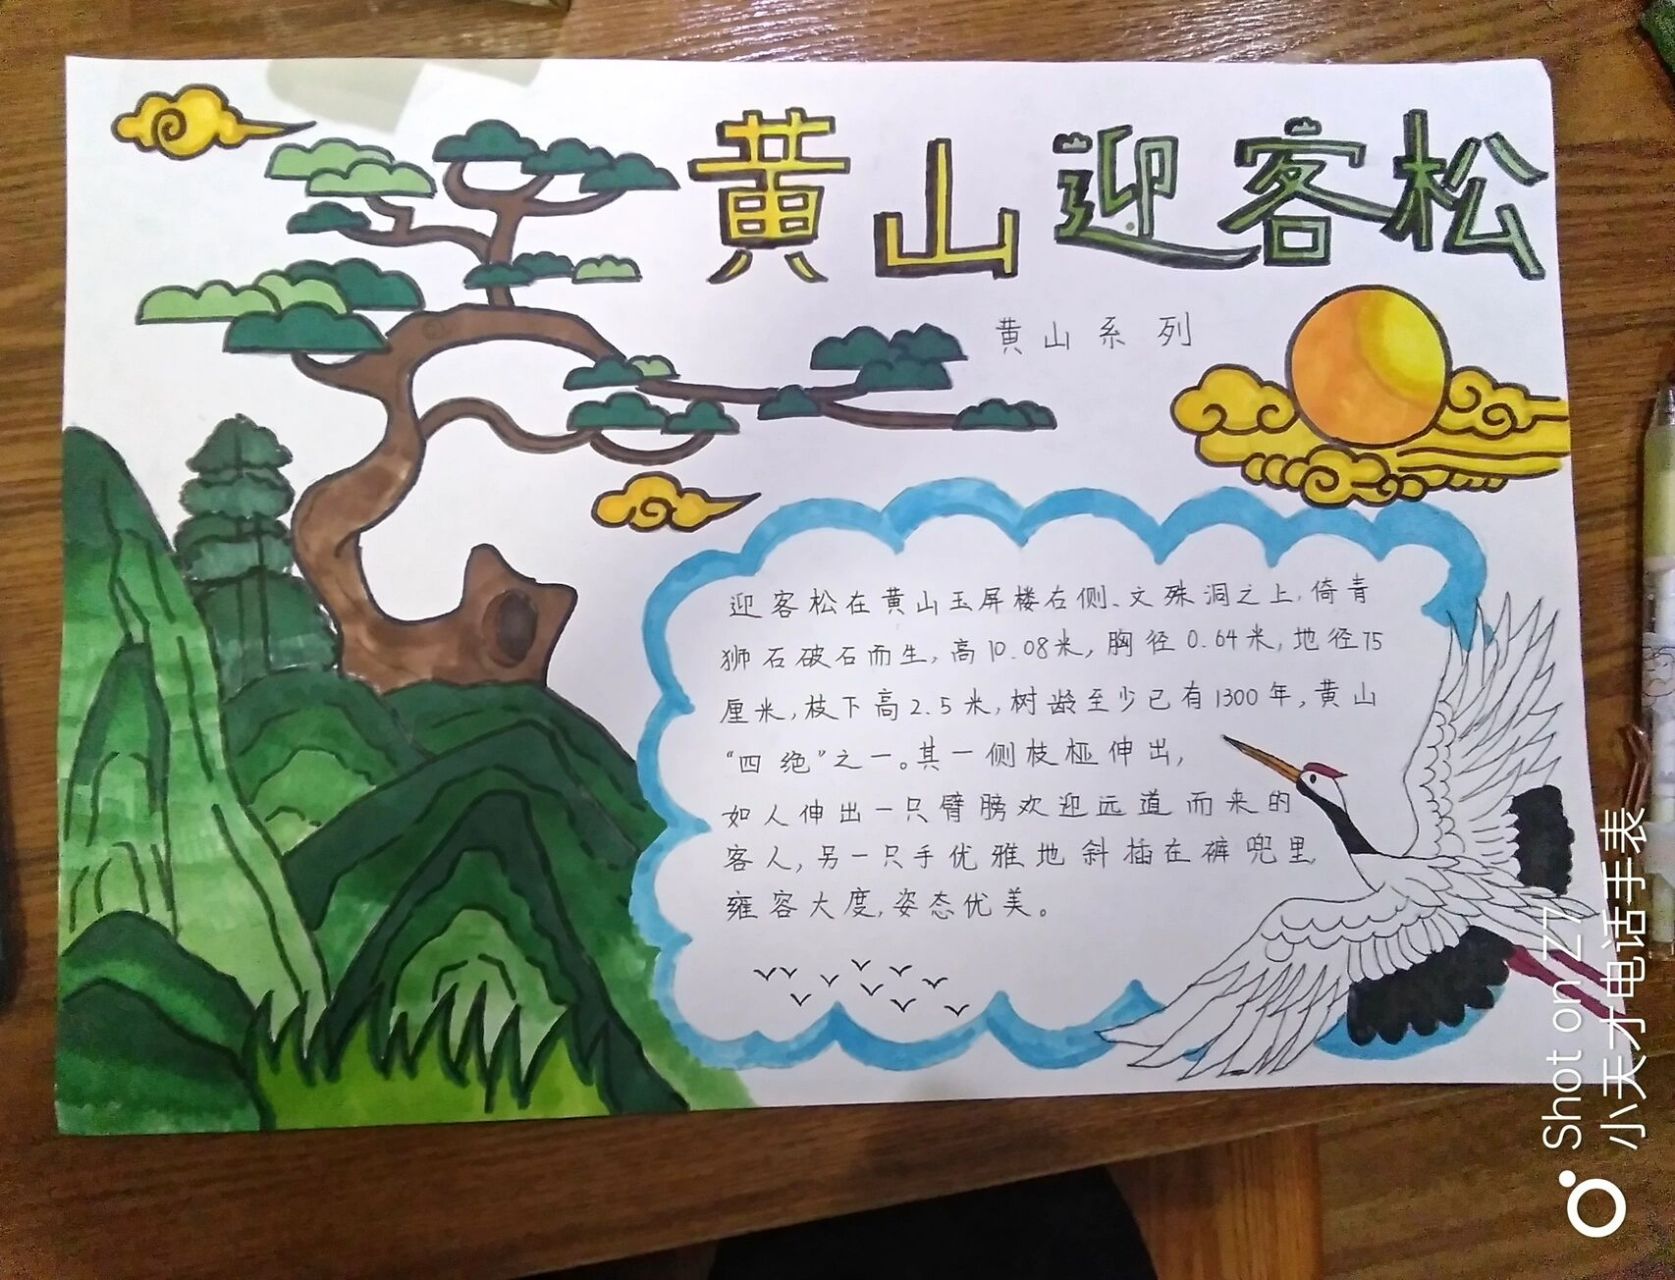 黄山迎客松
黄山系列
迎客松在黄山玉屏楼右侧、文殊洞之上,倚青
狮石破石而生,高10.08米,胸径0.64米,地径75
厘米,枝下高2.5米,树龄至少已有1300年,黄山
“四绝”之一。其一侧枝桠伸出,
如人伸出一只臂膀欢迎远道而来的
客人,另一只手优雅地斜插在裤兜里,
雍容大度,姿态优美。
Shot on Z7
小天才电话手表